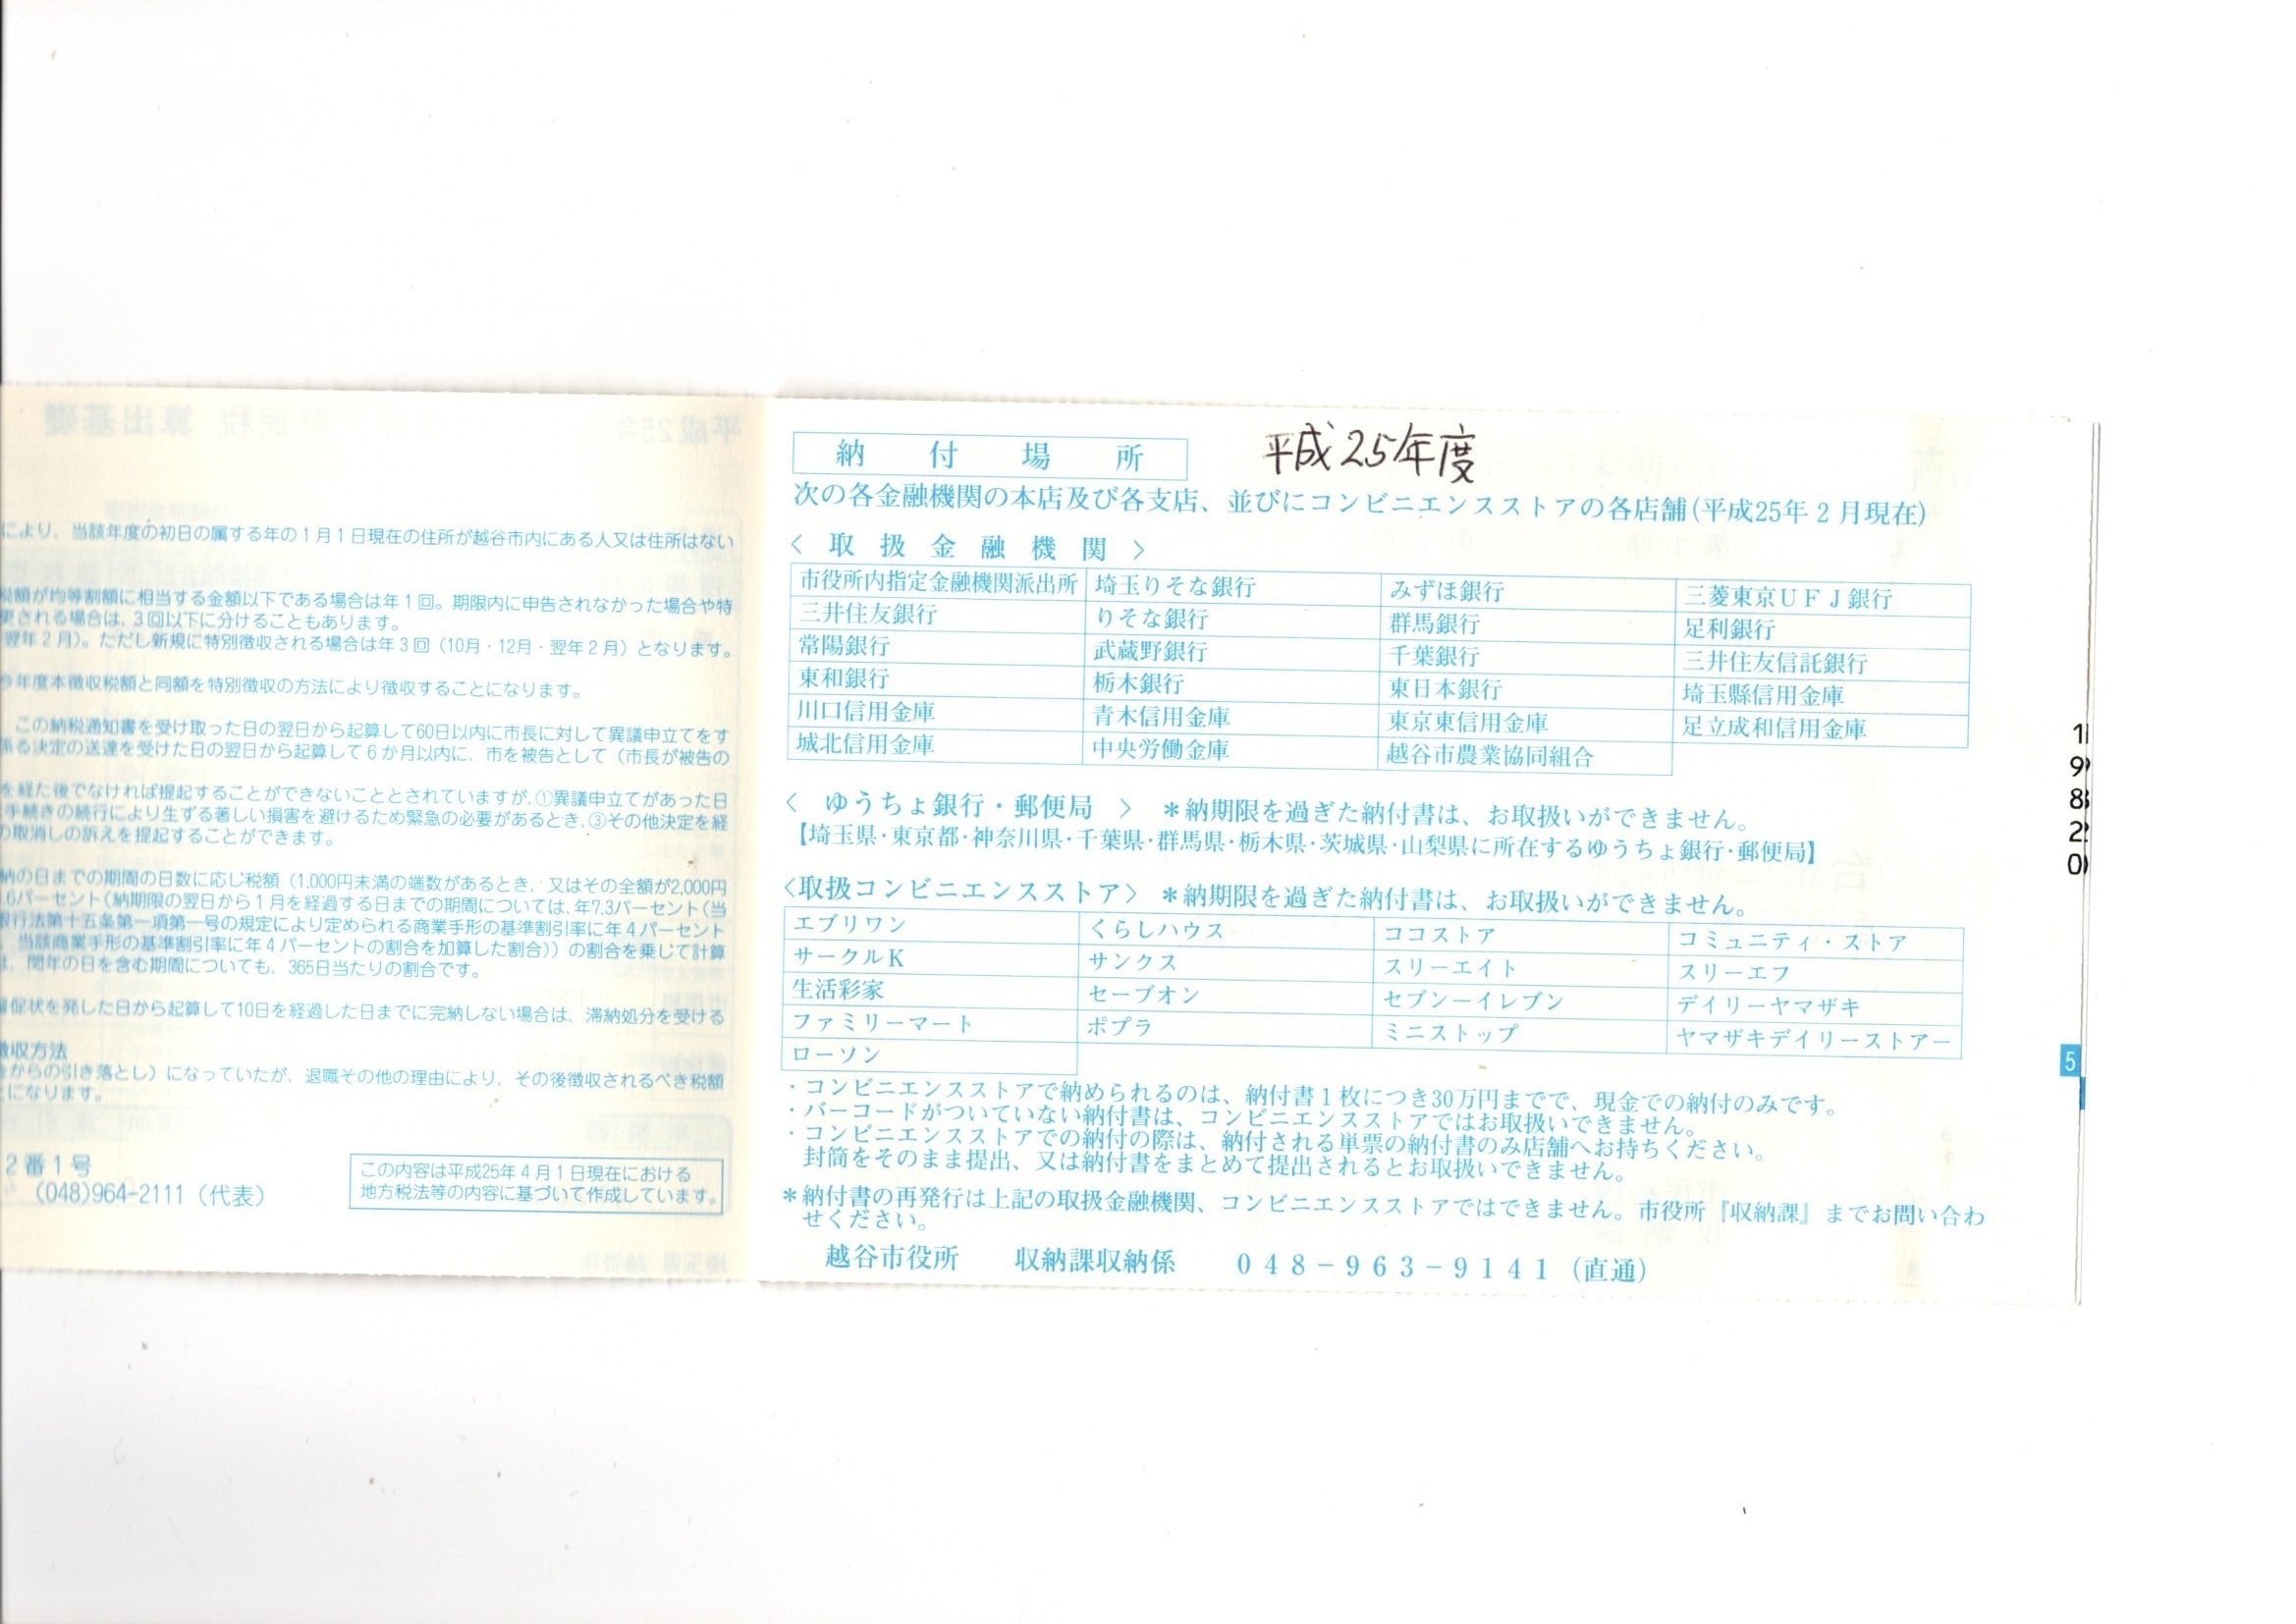 により、当該年度の初日の属する年の1月1日現在の住所が越谷市内にある人又は住所はない
税額が均等割額に相当する金額以下である場合は年1回。期限内に申告されなかった場合や特
更される場合は、3回以下に分けることもあります。
翌年2月)。ただし新規に特別徴収される場合は年3回(10月・12月・翌年2月)となります。
今年度本徴収税額と同額を特別徴収の方法により徴収することになります。
この納税通知書を受け取った日の翌日から起算して60日以内に市長に対して異議申立てをす
係る決定の送達を受けた日の翌日から起算して6か月以内に、市を被告として(市長が被告の
を経た後でなければ提起することができないこととされていますが、①異議申立てがあった日
手続きの続行により生ずる著しい損害を避けるため緊急の必要があるとき、③その他決定を経
の取消しの訴えを提起することができます。
納の日までの期間の日数に応じ税額(1,000円未満の端数があるとき、又はその全額が2,000円
.6パーセント(納期限の翌日から1月を経過する日までの期間については、年7.3パーセント(当
銀行法第十五条第一項第一号の規定により定められる商業手形の基準割引率に年4パーセント
当該商業手形の基準割引率に年4パーセントの割合を加算した割合))の割合を乗じて計算
は、閏年の日を含む期間についても、365日当たりの割合です。
督促状を発した日から起算して10日を経過した日までに完納しない場合は、滞納処分を受ける
徴収方法
からの引き落とし)になっていたが、退職その他の理由により、その後徴収されるべき税額
になります。
2番1号
(048)964-2111(代表)
この内容は平成25年4月1日現在における
地方税法等の内容に基づいて作成しています。
納付場所 平成25年度
次の各金融機関の本店及び各支店、並びにコンビニエンスストアの各店舗(平成25年2月現在)
〈取扱金融機関〉
市役所内指定金融機関派出所 埼玉りそな銀行 みずほ銀行 三菱東京UFJ銀行
三井住友銀行 りそな銀行 群馬銀行 足利銀行
常陽銀行 武蔵野銀行 千葉銀行 三井住友信託銀行
東和銀行 栃木銀行 東日本銀行 埼玉縣信用金庫
川口信用金庫 青木信用金庫 東京東信用金庫 足立成和信用金庫
城北信用金庫 中央労働金庫 越谷市農業協同組合
〈ゆうちょ銀行・郵便局〉 *納期限を過ぎた納付書は、お取扱いができません。
【埼玉県・東京都・神奈川県・千葉県・群馬県・栃木県・茨城県・山梨県に所在するゆうちょ銀行・郵便局】
〈取扱コンビニエンスストア〉 *納期限を過ぎた納付書は、お取扱いができません。
エブリワン くらしハウス ココストア コミュニティ・ストア
サークルK サンクス スリーエイト スリーエフ
生活彩家 セーブオン セブン-イレブン デイリーヤマザキ
ファミリーマート ポプラ ミニストップ ヤマザキデイリーストアー
ローソン
・コンビニエンスストアで納められるのは、納付書1枚につき30万円までで、現金での納付のみです。
・バーコードがついていない納付書は、コンビニエンスストアではお取扱いできません。
・コンビニエンスストアでの納付の際は、納付される単票の納付書のみ店舗へお持ちください。
封筒をそのまま提出、又は納付書をまとめて提出されるとお取扱いできません。
*納付書の再発行は上記の取扱金融機関、コンビニエンスストアではできません。市役所『収納課』までお問い合わ
せください。
越谷市役所 収納課収納係 048-963-9141(直通)
1
9
8
2
0
5